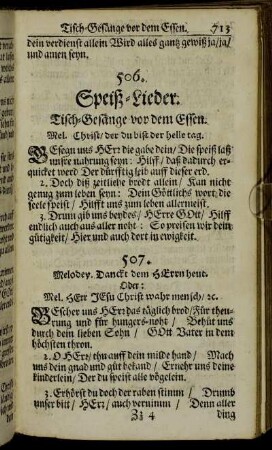 Tisch-Gesänge vor dem Essen. 713
dein verdienst allein Wird alles gantz gewiß ja/ja/
und amen seyn.
506.
Speiß-Lieder.
Tisch-Gesänge vor dem Essen.
Mel. Christ/ der du bist der helle tag.
Gesegn uns HErr die gabe dein/ Die speiß laß
unsre nahrung seyn: Hilff/ daß dadurch er-
quicket werd Der dürfftig leib auff dieser erd.
2. Doch diß zeitliche brodt allein/ Kan nicht
genug zum leben seyn: Dein Göttlichs wort/ die
seele speist/ Hilfft uns zum leben allermeist.
3. Drum gib uns beydes/ HErre GOtt/ Hilff
endlich auch aus aller noht: So preisen wir dein
gütigkeit/ Hier und auch dort in ewigkeit.
507.
Melodey. Danckt dem HErrn heut.
Oder:
Mel. HErr JEsu Christ wahr mensch/ ꝛc.
Bescher uns HErr das täglich brod/ Für theu-
rung und für hungers-noht/ Behüt uns
durch dein lieben Sohn/ GOtt Vater in dem
höchsten thron.
2. O HErr/ thu auff dein milde hand/ Mach
uns dein gnad und güt bekand/ Ernehr uns deine
kinderlein/ Der du speist alle vögelein.
3. Erhörst du doch der raben stimm/ Drumb
unser bitt/ HErr/ auch vernimm/ Denn aller
Zz 4 ding